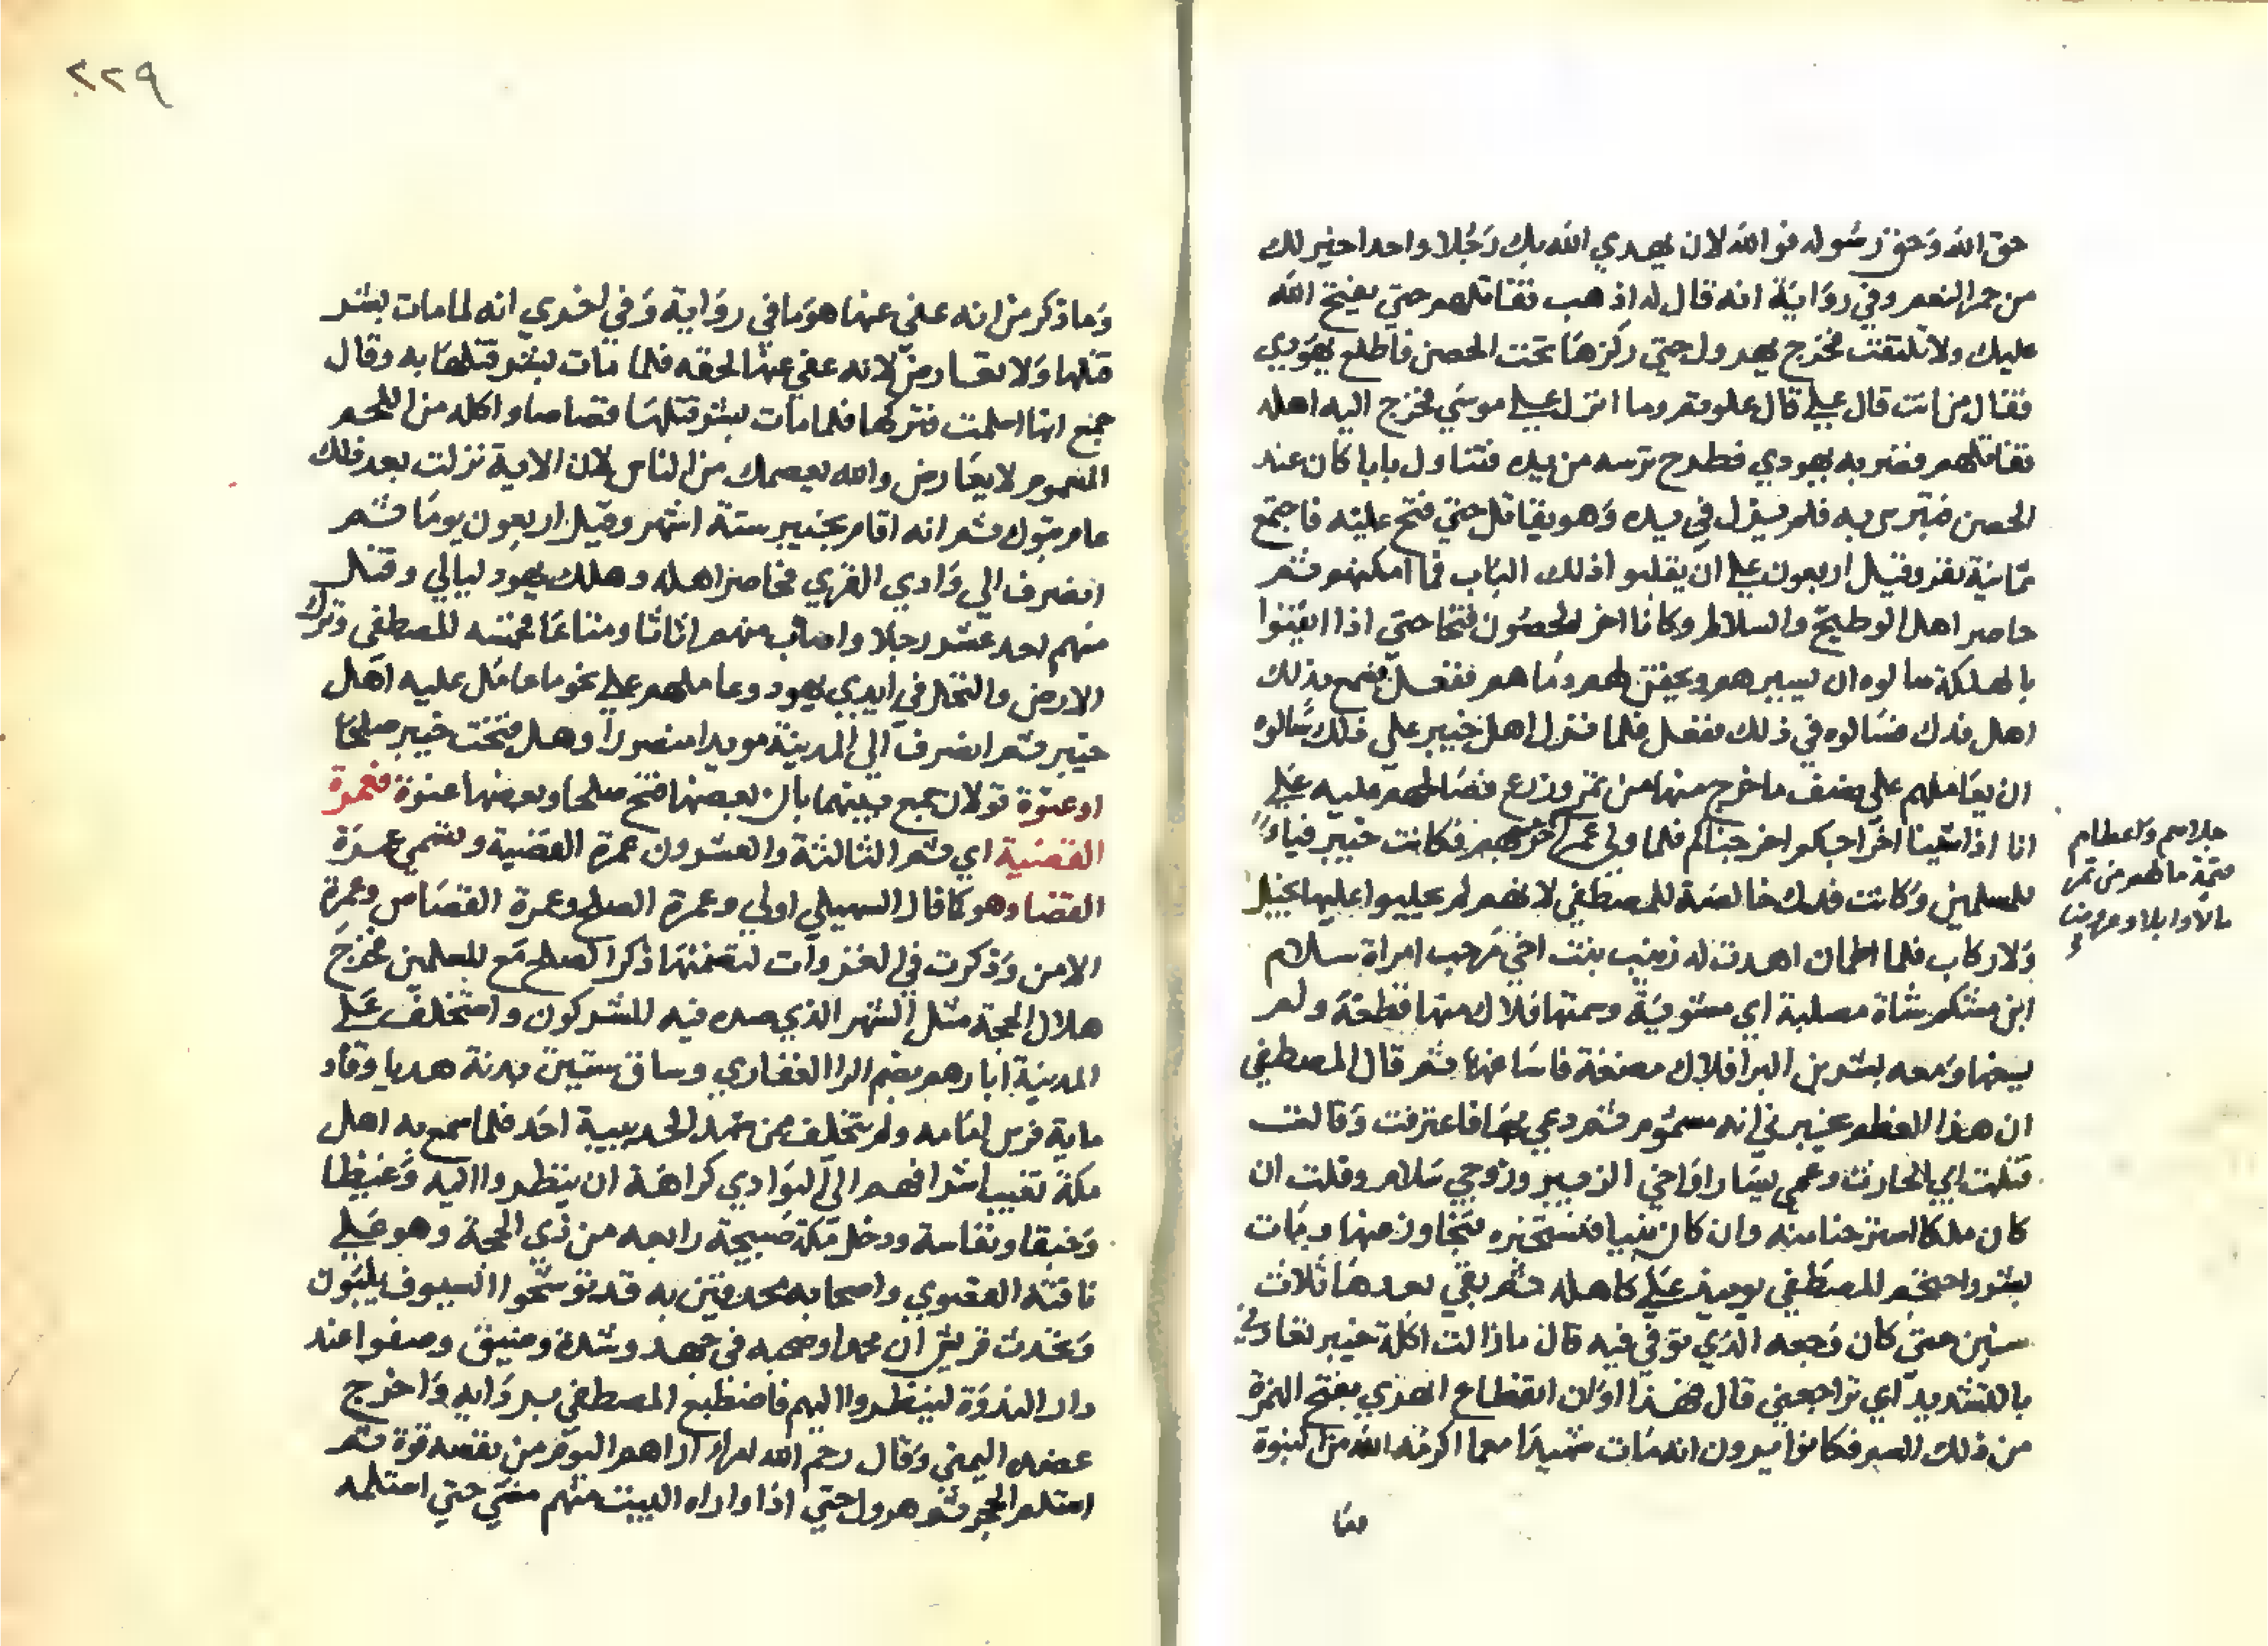 حق الله وحق رسوله فوالله لان يهدي الله بك رجلا واحدا خير لك
من حمر النعم وفي رواية انه قال له اذهب فقاتلهم حتي يفتح الله
عليك ولا تلتفت فخرج يهرول حتي ركزها تحت الحصن فاطلع يهودي
فقال من انت قال علي قال علوتم وما انزل علي موسي فخرج اليه اهله
فقاتلهم فضربه يهودي فطرح ترسه من يده فتناول بابا كان عند
الحصن فتترس به فلم يزل في يده وهو يقاتل حتي فتح عليه فاجتمع
ثمانية نفر وقيل اربعون علي ان يقلبوا ذلك الباب فما امكنهم ثم
حاصر اهل الوطيح والسلالم وكانا اخر الحصون فتحا حتي اذا ايقنوا
بالهلكة سالوه ان يسيرهم ويحقن لهم دماهم ففعل فسمع بذلك
اهل فدك فسالوه في ذلك ففعل فلما نزل اهل خيبر علي ذلك سالوه
ان يعاملهم علي نصف ما خرج منها من تمر وزرع فصالحهم عليه علي
انا اذا شينا اخراجكم اخرجناكم فلما ولي عمر اخرجهم فكانت خيبر فياء
للمسلمين وكانت فدك خالصة للمصطفي لانهم لم يجلبوا عليها بخيل
ولا ركاب فلما اطمان اهدت له زينب بنت اخي مرحب امراة سلام
ابن مشكم شاة مصلية اي مشوية وسمتها فلاك منها قطعة ولم
يسغها ومعه بشر بن البرا فلاك مضغة فاساغها ثم قال المصطفي
ان هذا العظم يخبرني انه مسموم ثم دعي بها فاعترفت وقالت
قتلت ابي الحارث وعمي يسارا واخي الزبير وزوجي سلام وقلت ان
كان ملكا استرحنا منه وان كان نبيا فسنخبره فتجاوز عنها ومات
بشر واحتجم المصطفي يوميذ علي كاهله ثم بقي بعدها ثلاث
سنين حتي كان وجعه الذي توفي فيه قال ما زالت اكلة خيبر تعادني
بالتشديد اي تراجعني قال فهذا اوان انقطاع ابهري بفتح الهمزة
من ذلك السم فكانوا يرون انه مات شهيدا مع ما اكرمه الله من النبوة
جلاهم واعطاهم
قيمة ما لهم من تمر
مالا وابلا وعروضا
٢٢٩
وما ذكر من انه عفي عنها هو ما في رواية وفي اخري انه لما مات بشر
قتلها ولا تعارض لانه عفي عنها لحقه فلما مات بشر قتلها به وقال
جمع انها اسلمت فتركها فلما مات بشر قتلها قصاصا واكله من اللحم
المسموم لا يعارض والله يعصمك من الناس لان الاية نزلت بعد ذلك
عام تبوك ثم انه اقام بخيبر ستة اشهر وقيل اربعون يوما ثم
انصرف الي وادي القري فحاصر اهله وهلك يهود ليالي وقتل
منهم احد عشر رجلا واصاب منهم اثاثا ومتاعا فخمسه المصطفي وترك
الارض والنخل في ايدي يهود وعاملهم علي نحو ما عامل عليه اهل
خيبر ثم انصرف الي المدينة مويدا منصورا وهل فتحت خيبر صلحا
او عنوة قولان جمع بينهما بان بعضها فتح صلحا وبعضها عنوة فعمرة
القضية اي ثم الثالثة والعشرون عمرة القضية وتسمي عمرة
القضا وهو كما قال السهيلي اولي وعمرة الصلح وعمرة القصاص وعمرة
الامن وذكرت في الغزوات لتضمنها ذكر الصلح مع المسلمين فخرج
هلال الحجة مثل الشهر الذي صده فيه المشركون واستخلف علي
المدينة ابا رهم بضم الرا الغفاري وساق ستين بدنة هديا وقاد
ماية فرس امامه ولم يتخلف ممن شهد الحديبية احد فلما سمع به اهل
مكة تغيب اشرافهم الي البوادي كراهة ان ينظروا اليه وغيظا
وخنقا ونفاسة ودخل مكة صبيحة رابعه من ذي الحجة وهو علي
ناقته القصوي واصحابه محدقين به قد توشحوا السيوف يلبون
وتحدث قريش ان محمدا وصحبه في جهد وشدة وضيق وصفوا عند
دار الندوة لينظروا اليهم فاضطبع المصطفي بردايه واخرج
عضده اليمني وقال رحم الله امراء اراهم اليوم من نفسه قوة ثم
استلم الحجر ثم هرول حتي اذا واراه البيت منهم مشي حتي استلمه